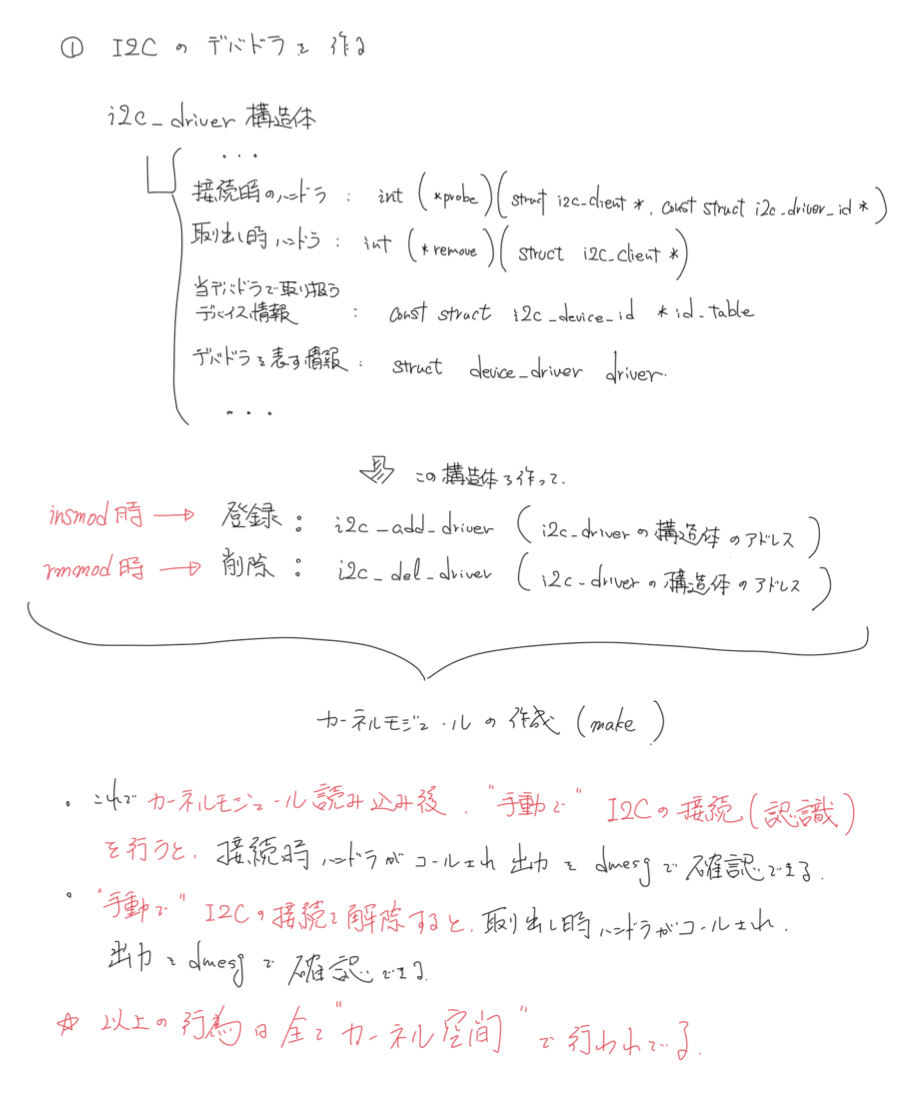 ① I2C の デバドラを 作る
i2c_driver 構造体
・・・
接続時のハンドラ : int (*probe)(struct i2c_client *, const struct i2c_driver_id *)
取り出し時ハンドラ : int (*remove)(struct i2c_client *)
当デバドラで取り扱う
デバイス情報 : const struct i2c_device_id *id_table
デバドラを表す情報 : struct device_driver driver.
・・・
この構造体を作って.
insmod時 → 登録 : i2c_add_driver (i2c_driverの構造体のアドレス)
rmmod時 → 削除 : i2c_del_driver (i2c_driverの構造体のアドレス)
カーネルモジュールの作成 (make)
・これで カーネルモジュール読み込み後, "手動で" I2Cの接続(認識)
を行うと, 接続時ハンドラがコールされ 出力を dmesgで確認できる.
・"手動で" I2Cの接続を解除すると, 取り出し時ハンドラがコールされ,
出力を dmesgで 確認できる.
☆ 以上の行為は全て"カーネル空間"で行われている.